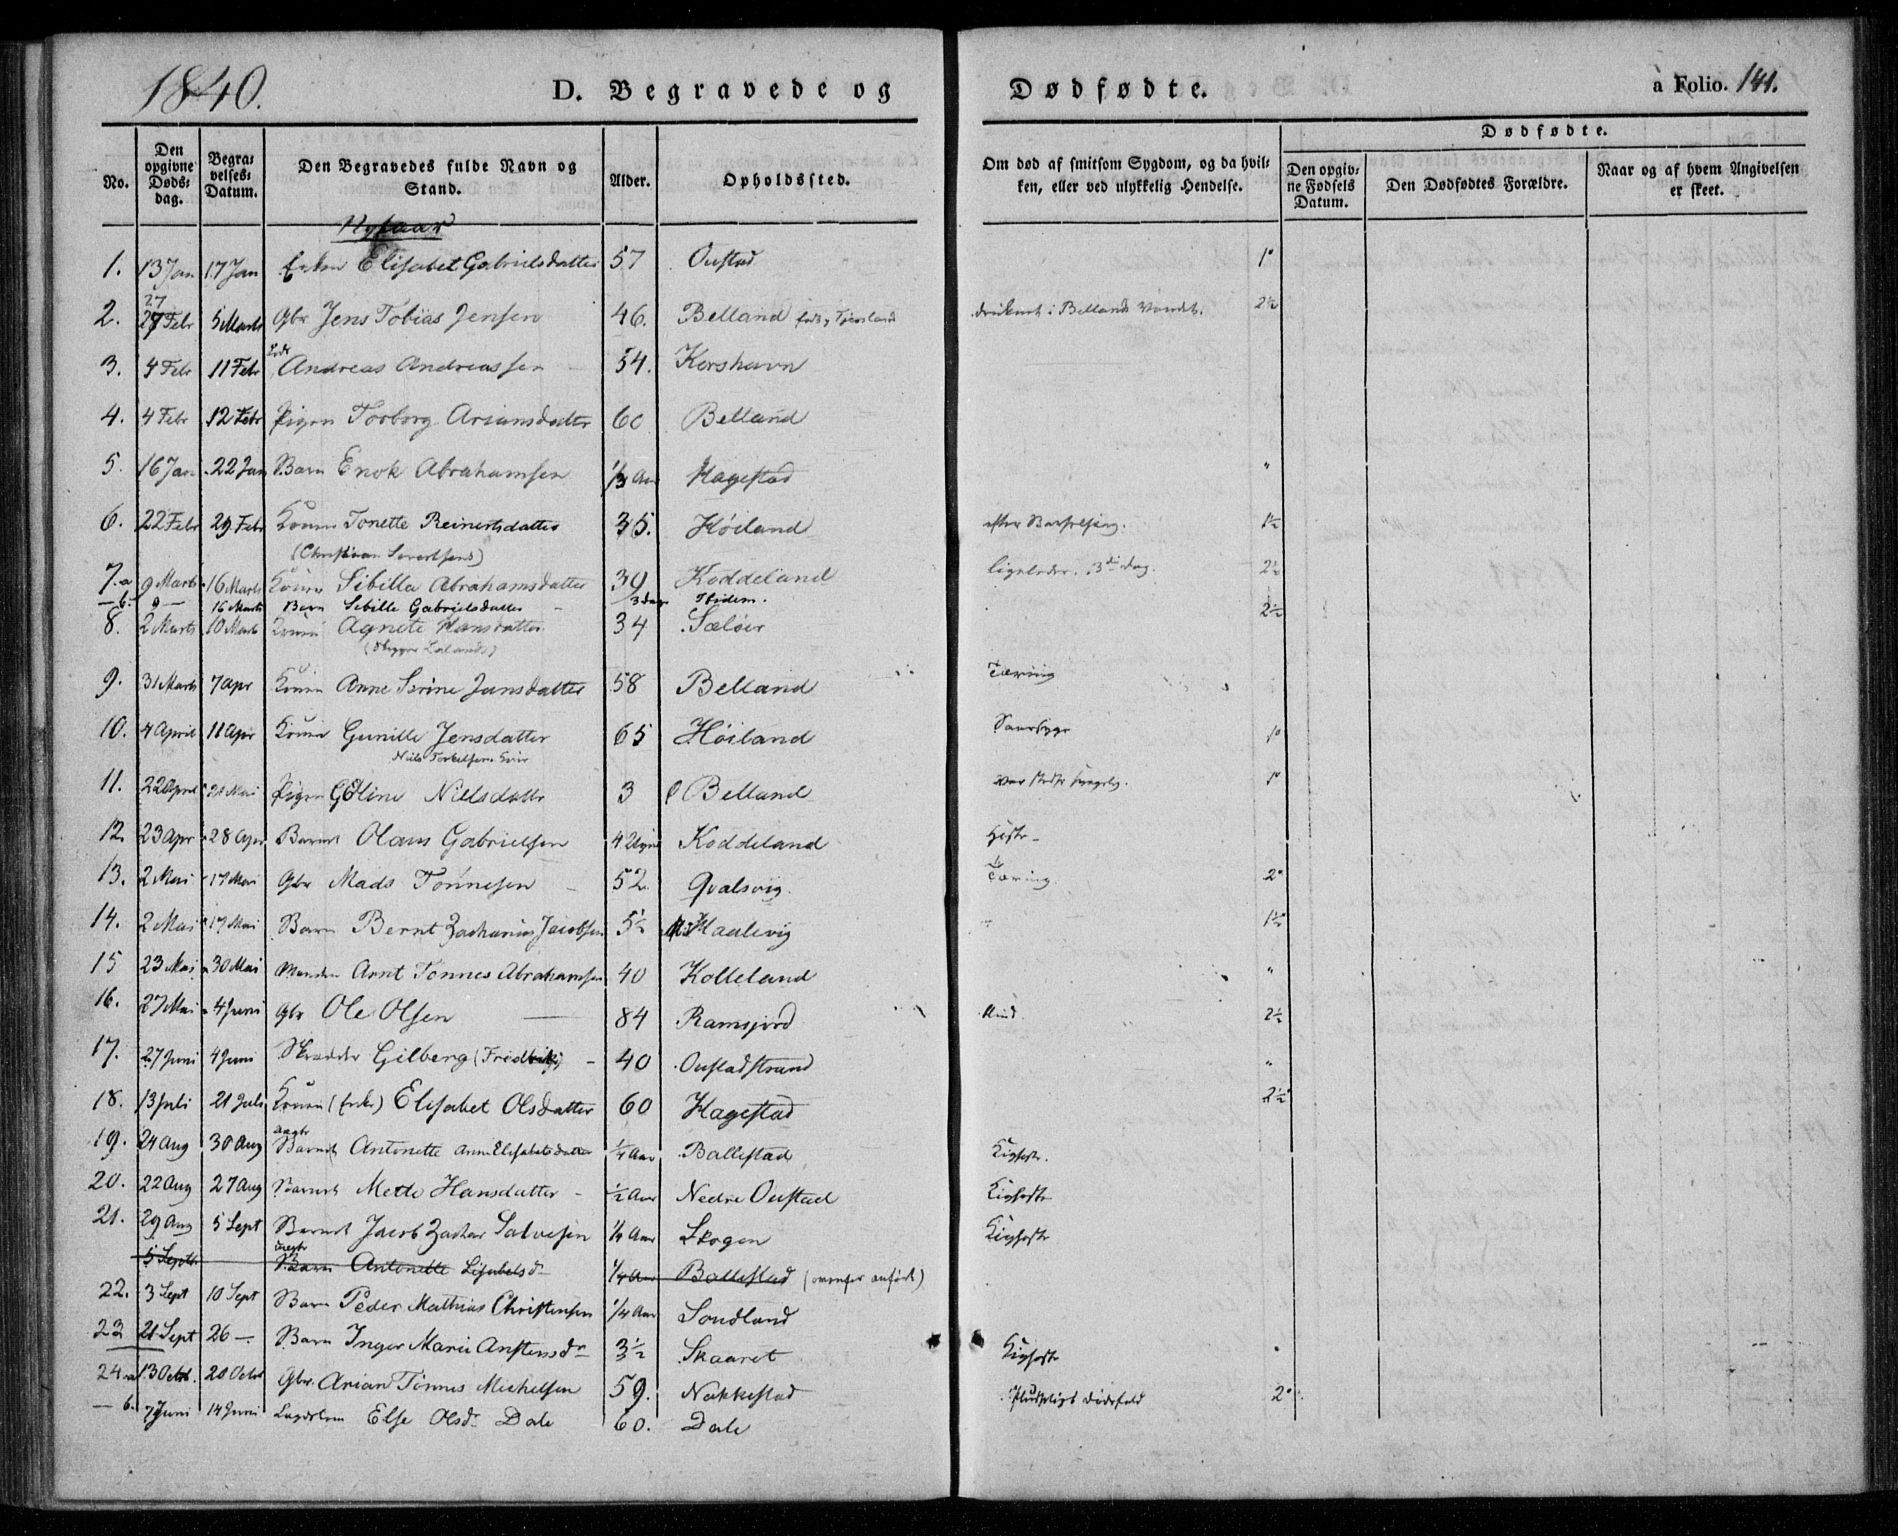 1840.
D. Begravede og Dødfødte.
a Folio. 141.
No.
Den opgivne Døds-dag.
Begra-velses-Datum.
Den Begravedes fulde Navn og Stand.
Alder.
Opholdssted.
Om død af smitsom Sygdom, og da hvil-ken, eller ved ulykkelig Hendelse.
Dødfødte.
Den opgiv-ne Fødsels Datum.
Den Dødfødtes Forældre.
Naar og af hvem Angivelsen er skeet.
Nytaar
1. 13 Jan 17 Jan Enken Elisabet Gabrielsdatter 57 Oustad 1°
2. 27 Febr 5 Marts Gbr Jens Tobias Jensen 46. Belland i Bellands Vandet. 2½
3. 4 Febr 11 Febr Lods Andreas Andreassen 54. Korshavn
4. 4 Febr 12 Febr Pigen Torborg Ariansdatter 60 Belland
5. 16 Jan 22 Jan Barn Enok Abrahamsen Aar Hagestad "
6. 22 Febr 29 Febr Konen Tonette Reinertsdatter 35. Høiland efter Barselseng. 1½
(Christian Sivertsens)
7.a 9 Marts 16 Marts Konen Sibilla Abrahamsdatter 39 Koddeland ligeledes. 3die dag. 2½
— b. 9 — 16 Marts Barn Sibille Gabrielsdatter 3 dage Ibidem. 2½
8. 2 Marts 10 Marts Konen Agnete Hansdatter 34 Sæløer
9. 31 Marts 7 Apr Konen Anne Serine Jansdatter 58 Belland Tæring
10. 4 April 11 Apr Konen Gunille Jensdatter 65 Høiland 1°
Niels Torkelsens Enke
11. 22 April 21 Mai Pigen Goline Nielsdatter 3 Belland var stedse 1°
12. 23 Apr 28 Apr Barnet Olaus Gabrielsen 4 Uger Koddeland Hoste
13. 2 Mai 17 Mai Gbr Mads Tønnesen 52 Qvalsvig. Tæring. 2°
14. 2 Mai 17 Mai Barn Bernt Zacharias Jacobsen 5½ Maalevig 1½
15 23 Mai 30 Mai Manden Arnt Tønnes Abrahamsen 40 Kolleland "
16. 27 Mai 4 Juni Gbr Ole Olsen 84 Ramsjord Blind 2½
17. 27 Juni 4 Juni Skredder Gilberg (Fredrik) 40 Oustadstrand "
18. 13 Juli 21 Juli Konen (Enke) Elisabet Olsdatter 60 Hagestad 2½
19. 24 Aug 30 Aug Barnet Antonette Ann Elisabetsdatter ¼ Aar Ballestad Kighoste.
20. 22 Aug 27 Aug Barnet Mette Hansdatter ½ Aar Nedre Oustad Kighoste
21. 29 Aug 5 Sept Barnet Jacob Zachar Salvesen ¼ Aar Skogen Kighoste
5 Sept Barn Antonette Lisabetsdr ¼ Aar Ballestad (ovenfor anført)
22. 3 Sept 10 Sept Barn Peder Mathias Christensen ¼ Aar Sondland
23 21 Sept 26 — Barn Inger Marie Anstensdr 3½ Skaaret Kighoste
24.a 13 Octbr. 20 Octbr Gbr. Arian Tønnes Michelsen 59. Nakkestad Pludseligt Dødsfald 2°
— b. 7 Juni 14 Juni Lægdslem Else Olsdr Dale 60. Dale